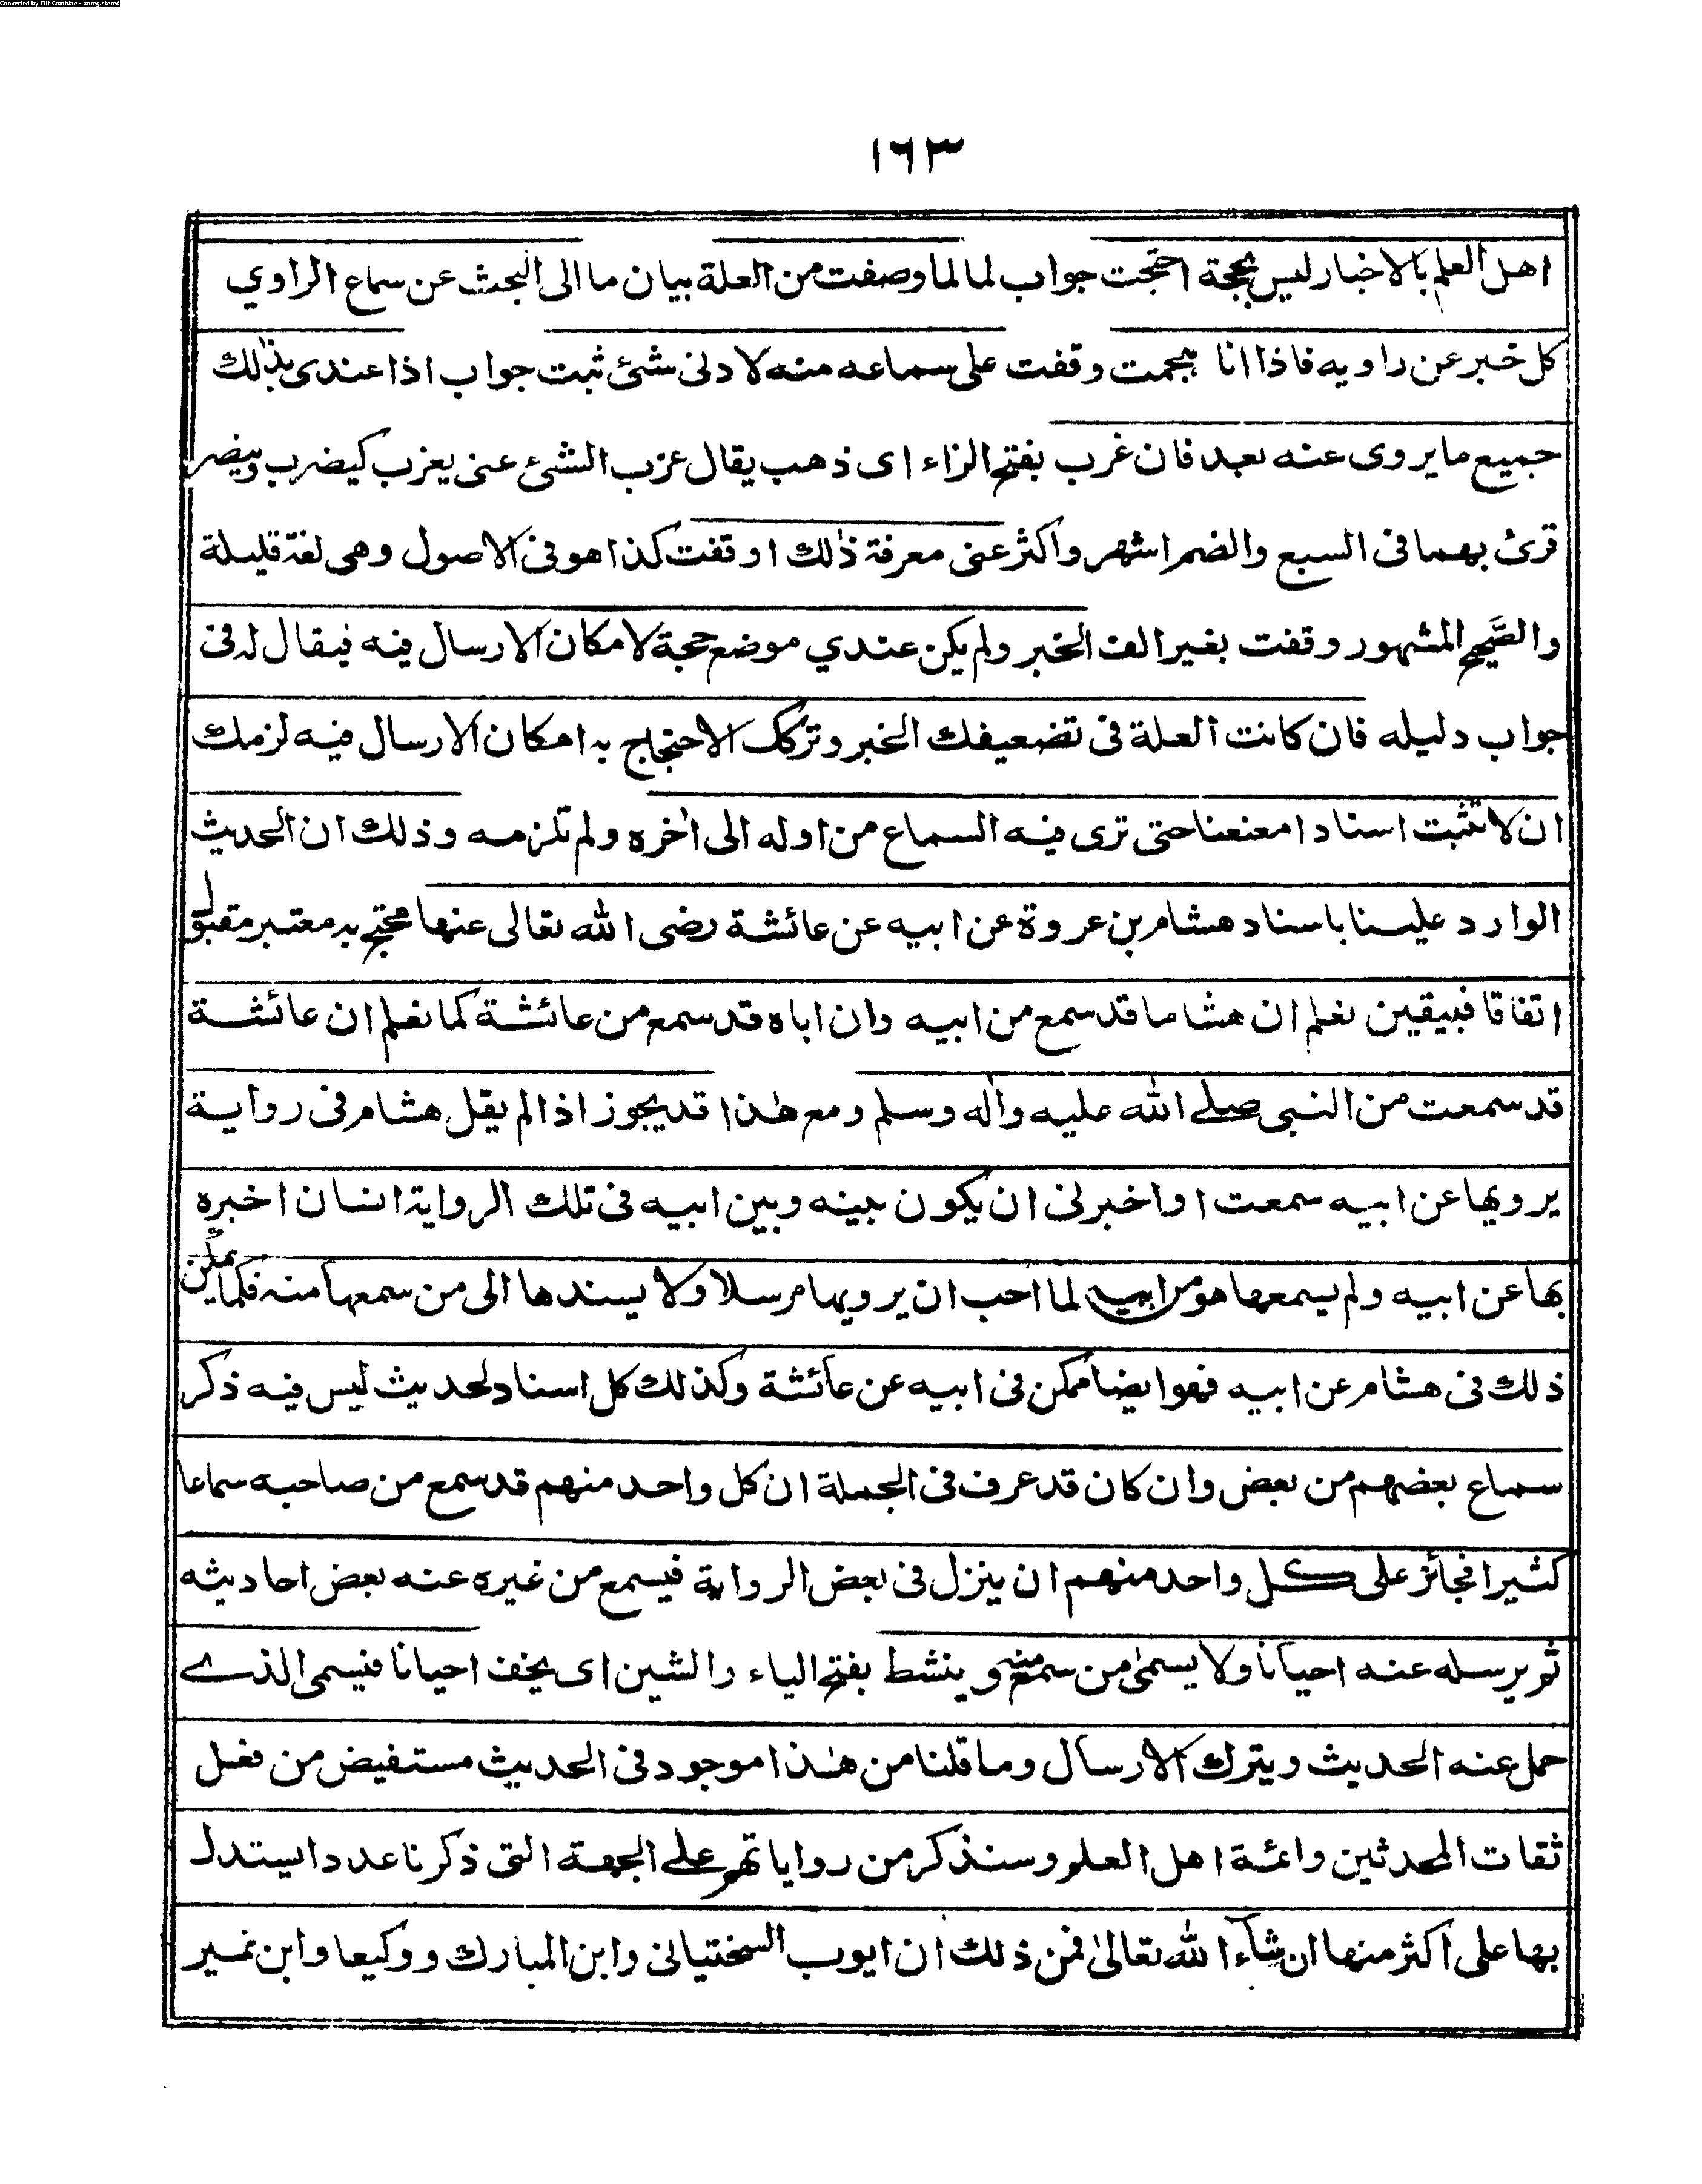 Converted by Tiff Combine - unregistered
١٦٣
اهل العلم بالاخبار ليس بحجة احتجت جواب لما لما وصفت من العلة بيان ما الى البحث عن سماع الراوي
كل خبر عن راويه فاذا انا هجمت وقفت على سماعه منه لادنى شئ ثبت جواب اذا عندى بذٰلك
جميع ما يروى عنه بعد فان غرب بفتح الزاء اى ذهب يقال عزب الشئ عنى يعزب كيضرب وينصر
قرئ بهما فى السبع والضم اشهر واكثر عنى معرفة ذٰلك اوقفت كذا هو فى الاصول وهى لغة قليلة
والصَّحيح المشهور وقفت بغير الف الخبر ولم يكن عندي موضع حجة لامكان الارسال فيه فيقال له فى
جواب دليله فان كانت العلة فى تضعيفك الخبر وتركك الاحتجاج به امكان الارسال فيه لزمك
ان لا تثبت اسنادا معنعنا حتى ترى فيه السماع من اوله الى اٰخره ولم تلزمه وذلك ان الحديث
الوارد علينا باسناد هشام بن عروة عن ابيه عن عائشة رضى الله تعالى عنها محتج به معتبر مقبول
اتفاقا فبيقين نعلم ان هشاما قد سمع من ابيه وان اباه قد سمع من عائشة كما نعلم ان عائشة
قد سمعت من النبى صلے الله عليه واٰله وسلم ومع هٰذا قد يجوز اذا لم يقل هشام فى رواية
يرويها عن ابيه سمعت او اخبرنى ان يكون بينه وبين ابيه فى تلك الرواية انسان اخبره
بها عن ابيه ولم يسمعها هو من ابيه لما احب ان يرويها مرسلا ولا يسندها الى من سمعها منه فكما يمكن
ذلك فى هشام عن ابيه فهو ايضا ممكن فى ابيه عن عائشة وكذلك كل اسناد لحديث ليس فيه ذكر
سماع بعضهم من بعض وان كان قد عرف فى الجملة ان كل واحد منهم قد سمع من صاحبه سماعا
كثيرا فجائز على كل واحد منهم ان ينزل فى بعض الرواية فيسمع من غيره عنه بعض احاديثه
ثم يرسله عنه احيانا ولا يسمى من سمع منه وينشط بفتح الياء والشين اى يخف احيانا فيسمى الذے
حمل عنه الحديث ويترك الارسال وما قلنا من هٰذا موجود فى الحديث مستفيض من فعل
ثقات المحدثين وائمة اهل العلم وسنذكر من رواياتهم علے الجهة التى ذكرنا عددا يستدل
بها على اكثر منها ان شآء الله تعالىٰ فمن ذلك ان ايوب السختيانى وابن المبارك ووكيعا وابن نمير